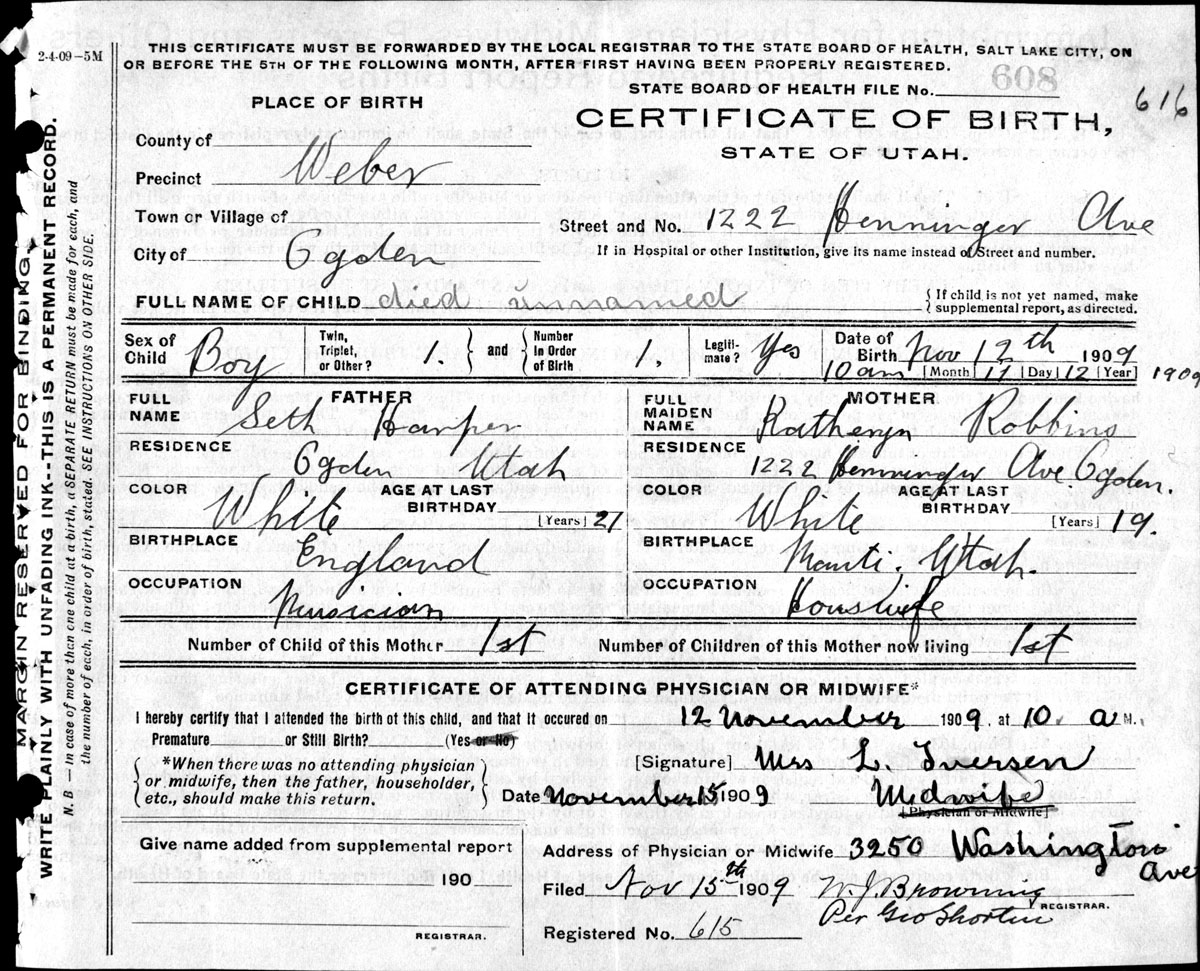 2-4-09-5M
THIS CERTIFICATE MUST BE FORWARDED BY THE LOCAL REGISTRAR TO THE STATE BOARD OF HEALTH, SALT LAKE CITY, ON
OR BEFORE THE 5TH OF THE FOLLOWING MONTH, AFTER FIRST HAVING BEEN PROPERLY REGISTERED.
608
STATE BOARD OF HEALTH FILE No.
616
PLACE OF BIRTH
CERTIFICATE OF BIRTH,
STATE OF UTAH.
County of
Precinct Weber
Town or Village of
City of Ogden
Street and No. 1222 Henninger Ave
If in Hospital or other Institution, give its name instead of Street and number.
FULL NAME OF CHILD died unnamed
{ If child is not yet named, make
supplemental report, as directed.
Sex of Child Boy
Twin, Triplet, or Other? 1. } and { Number In Order of Birth 1.
Legiti-mate? Yes
Date of Birth Nov 12th 1909
10 am [Month 11 [Day 12 [Year] 1909
FATHER
FULL NAME Seth Harper
RESIDENCE Ogden Utah
COLOR White
AGE AT LAST BIRTHDAY [Years] 21
BIRTHPLACE England
OCCUPATION Musician
MOTHER
FULL MAIDEN NAME Katheryn Robbins
RESIDENCE 1222 Henninger Ave. Ogden.
COLOR White
AGE AT LAST BIRTHDAY [Years] 19.
BIRTHPLACE Manti. Utah.
OCCUPATION Houswife
Number of Child of this Mother 1st
Number of Children of this Mother now living 1st
CERTIFICATE OF ATTENDING PHYSICIAN OR MIDWIFE*
I hereby certify that I attended the birth of this child, and that it occured on 12 November 1909. at 10. a M.
Premature or Still Birth? (Yes or No)
{ *When there was no attending physician
or midwife, then the father, householder,
etc., should make this return. }
[Signature] Mrs L. Iversen
Date November 15 1909 Midwife
[Physician or Midwife]
Give name added from supplemental report
190
REGISTRAR.
Address of Physician or Midwife 3250 Washington Ave
Filed Nov 15th 1909 W. J. Browning
REGISTRAR.
Per Geo Shorten
Registered No. 615
MARGIN RESERVED FOR BINDING.
WRITE PLAINLY WITH UNFADING INK--THIS IS A PERMANENT RECORD.
N. B — In case of more than one child at a birth, a SEPARATE RETURN must be made for each, and
the number of each, in order of birth, stated. SEE INSTRUCTIONS ON OTHER SIDE.